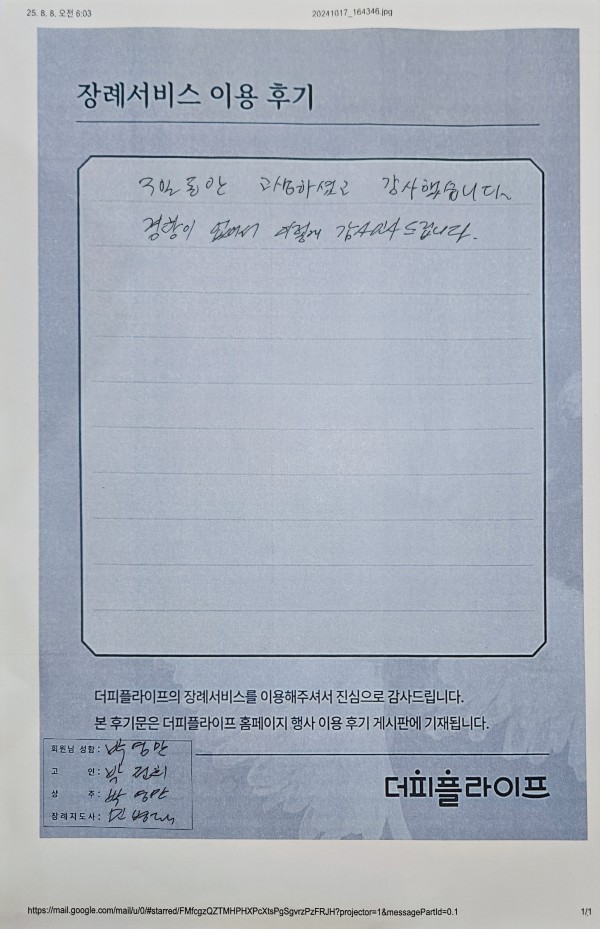 25. 8. 8. 오전 6:03
20241017_164346.jpg
장례서비스 이용 후기
3일 동안 고생하셨고 감사했습니다~
경황이 없어서 이렇게 감사인사 드립니다.
더피플라이프의 장례서비스를 이용해주셔서 진심으로 감사드립니다.
본 후기문은 더피플라이프 홈페이지 행사 이용 후기 게시판에 기재됩니다.
회원님 성함 : 박영만
고 인 : 박
상 주 : 박영만
장례지도사 : 민병
더피플라이프
https://mail.google.com/mail/u/0/#starred/FMfcgzQZTMHPHXPcXtsPgSgvrzPzFRJH?projector=1&messagePartId=0.1
1/1